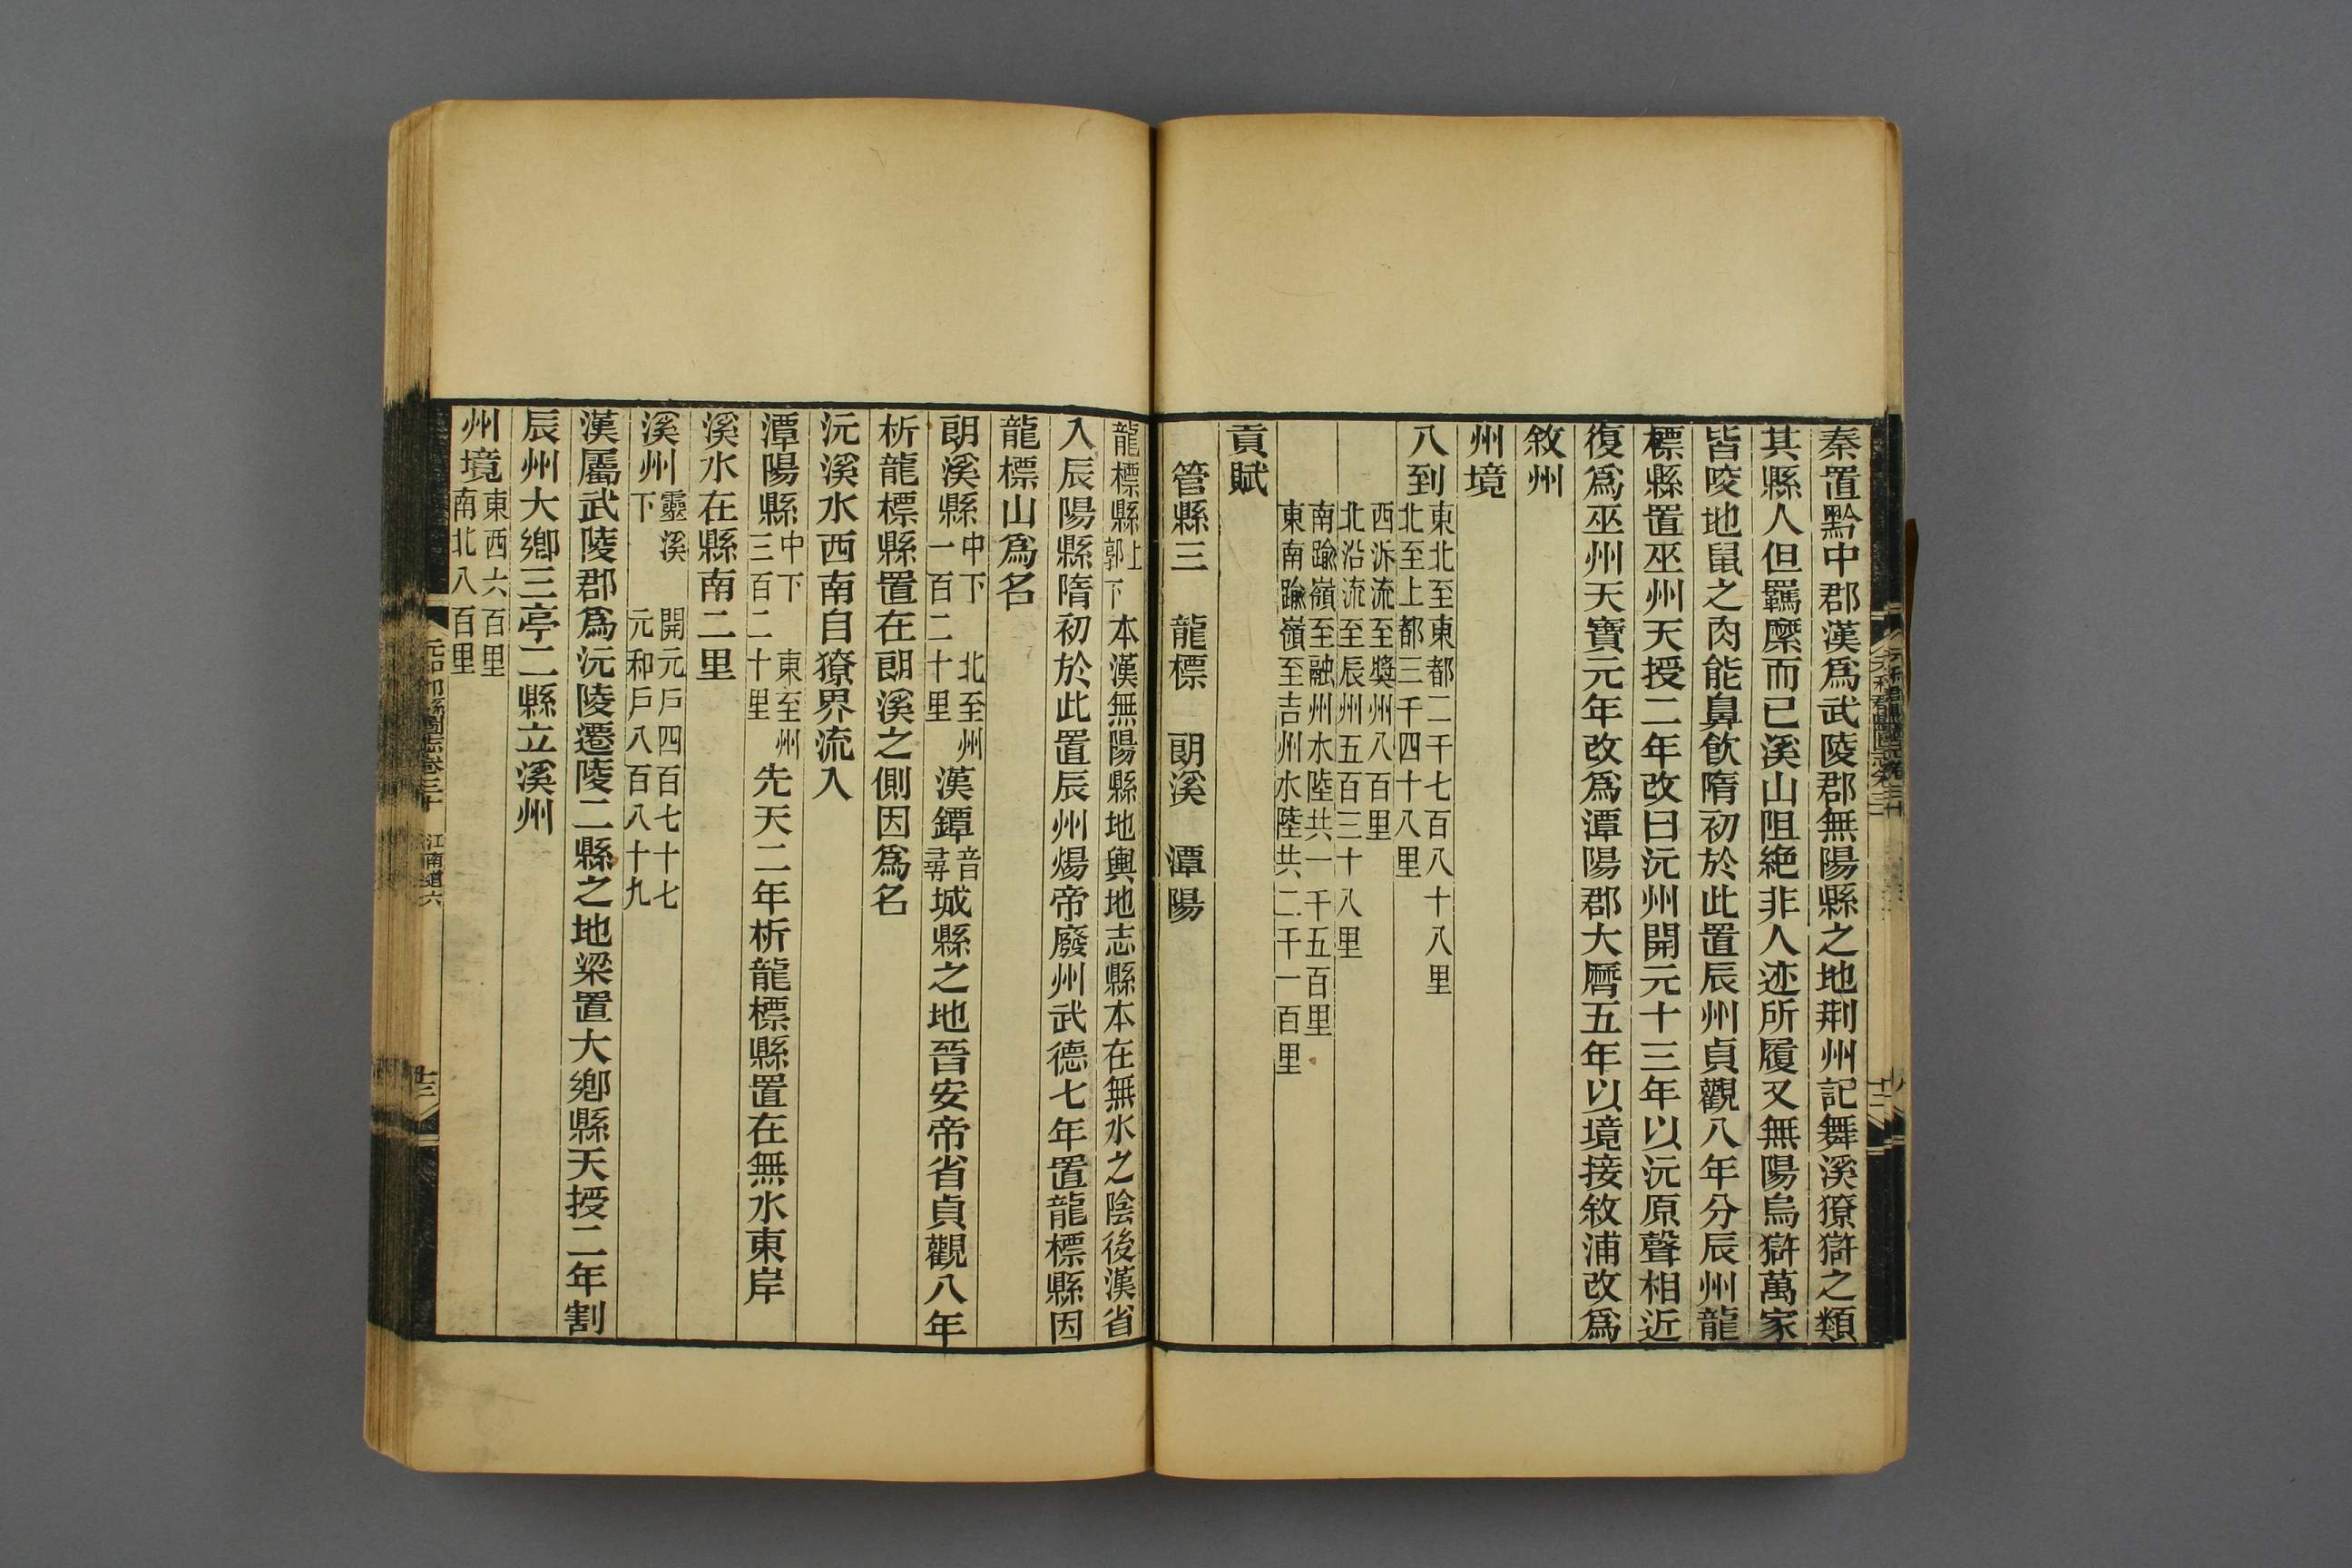 秦置黔中郡漢爲武陵郡無陽縣之地荆州記舞溪獠獠之類
其縣人但羈縻而已溪山阻絶非人迹所履又無陽烏獠萬家
皆咬地鼠之肉能鼻飲隋初於此置辰州貞觀八年分辰州龍
標縣置巫州天授二年改曰沅州開元十三年以沅原聲相近
復爲巫州天寶元年改爲潭陽郡大曆五年以境接敘浦改爲
敘州
州境
八到東北至東都二千七百八十八里
北至上都三千四十八里
西泝流至獎州八百里
北沿流至辰州五百三十八里
南踰嶺至融州水陸共一千五百里
東南踰嶺至吉州水陸共二千一百里
貢賦
管縣三 龍標 朗溪 潭陽
龍標縣上郭下 本漢無陽縣地輿地志縣本在無水之陰後漢省
入辰陽縣隋初於此置辰州煬帝廢州武德七年置龍標縣因
龍標山爲名
朗溪縣中下 北至州一百二十里 漢鐔音尋城縣之地晉安帝省貞觀八年
析龍標縣置在朗溪之側因爲名
沅溪水西南自獠界流入
潭陽縣中下 東至州三百二十里 先天二年析龍標縣置在無水東岸
溪水在縣南二里
溪州靈溪下 開元戶四百七十七 元和戶八百八十九
漢屬武陵郡爲沅陵遷陵二縣之地梁置大鄉縣天授二年割
辰州大鄉三亭二縣立溪州
州境東西六百里
南北八百里
江南道六